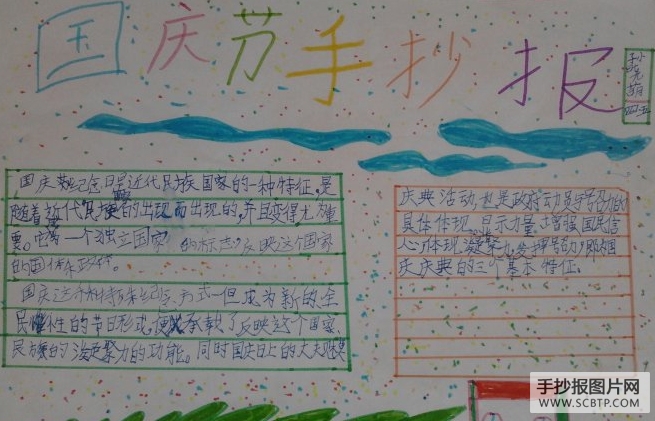 国庆节手抄报
国庆纪念日是近代民族国家的一种特征,是
随着近代民族的出现而出现的,并且变得尤为重
要。它 一个独立国家 的标志,反映这个国家
的国体和政体。
国庆这种特殊纪念方式一但成为新的、全
民 性的节日形式,便 承载了反映这个国家、
民族的凝聚力的功能。同时国庆日上的大
庆典活动,也是政府动员与号召力的
具体体现。显示力量、增强国民信
心,体现凝聚力,发挥号召力,即为国
庆庆典的三个基本特征。
手抄报图片网
WWW.SCBTP.COM